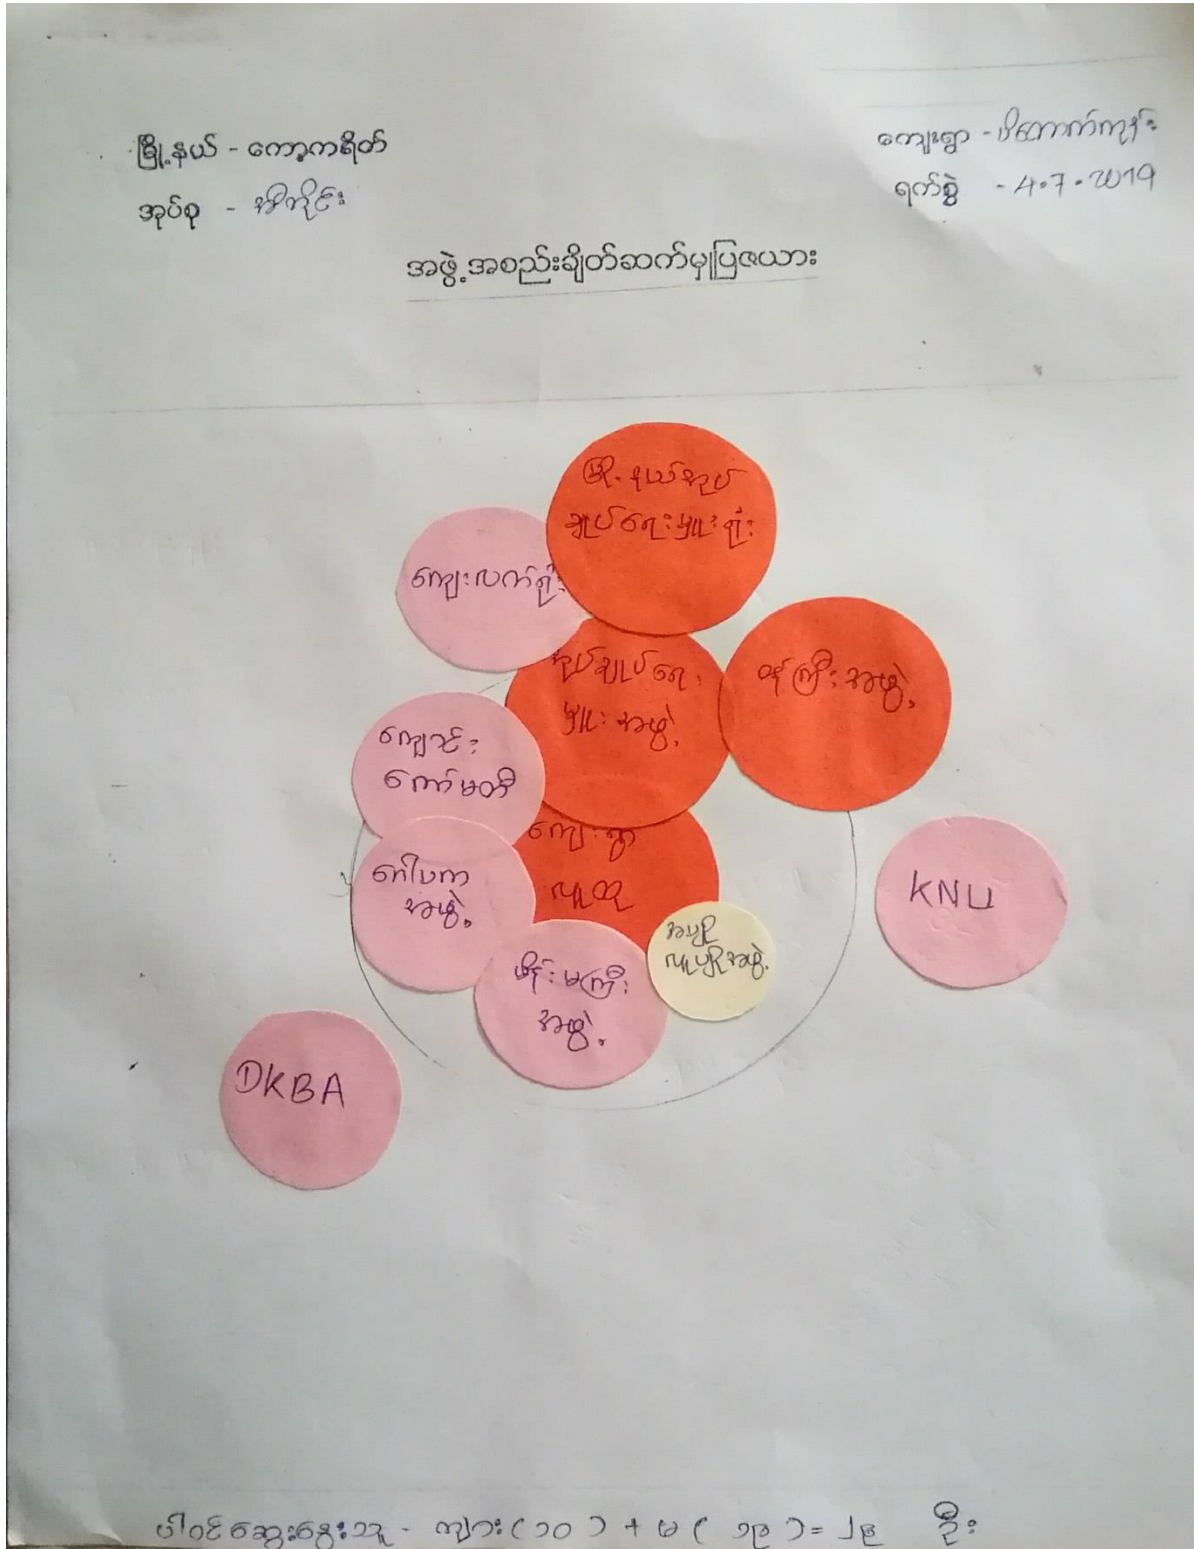 မြို့နယ် - ကော့ကရိတ်
ကျေးရွာ - ပိတောက်ကုန်း
အုပ်စု - အီကိုင်း
ရက်စွဲ - 4.7.2019
အဖွဲ့အစည်းချိတ်ဆက်မှုပြဇယား
မြို့နယ်အုပ်
ချုပ်ရေးမှူးရုံး
ကျေးလက်ရုံး
အုပ်ချုပ်ရေး
မှူးအဖွဲ့
ဝန်ကြီးအဖွဲ့
ကျောင်း
ကော်မတီ
ကျေးရွာ
လူထု
ဂေါပက
အဖွဲ့
KNU
အပျို
လူပျိုအဖွဲ့
မိန်းမကြီး
အဖွဲ့
DKBA
ပါဝင်ဆွေးနွေးသူ - ကျား (၁၀) + မ (၁၉) = ၂၉ ဦး